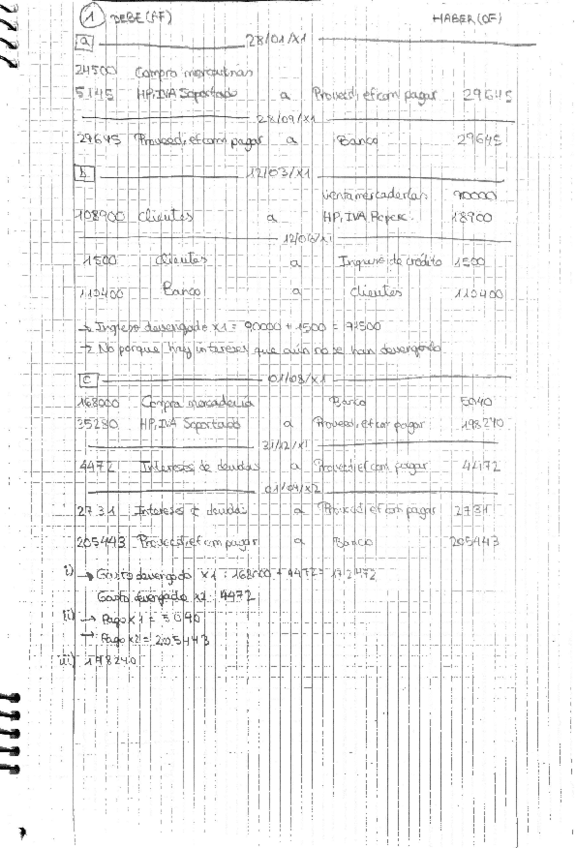 1 DEBE (AF) HABER (OF)
a 28/01/X1
24500 Compra mercaderías
5145 HP, IVA Soportado a Proveed, ef com pagar 29645
28/09/X1
29645 Proveed, ef com pagar a Banco 29645
b 12/03/X1
Venta mercaderías 90000
108900 Clientes a HP, IVA Reperc. 18900
12/06/X1
1500 clientes a Ingreso de crédito 1500
110400 Banco a clientes 110400
→ Ingreso devengado X1 = 90000 + 1500 = 91500
→ No porque hay intereses que aún no se han devengado
c 01/03/X1
168000 Compra mercadería Banco 5040
35280 HP, IVA Soportado a Proveed, ef com pagar 198240
31/12/X1
4472 Intereses de deudas a Proveed, ef com pagar 4472
01/04/X2
2731 Intereses de deudas a Proveed, ef com pagar 2731
205443 Proveed, ef com pagar a Banco 205443
i) → Gasto devengado X1 = 168000 + 4472 = 172472
Gasto devengado X2 = 4472
ii) → Pago X1 = 5040
→ Pago X2 = 205443
iii) 198240